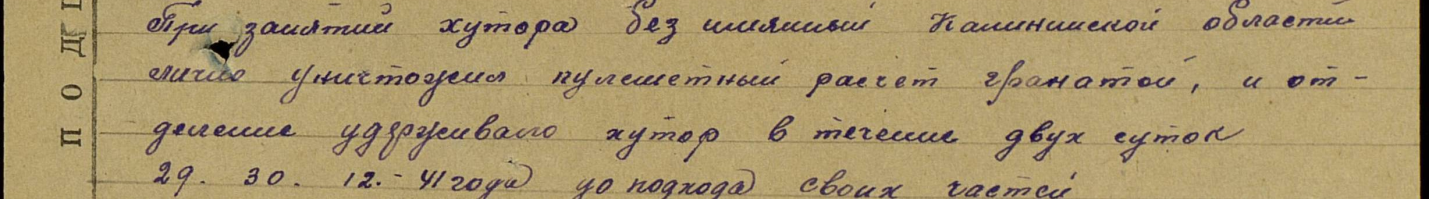 При занятий хутора без имянный Калининской области
лично уничтожил пулеметный расчет гранатой, и от-
деление удерживало хутор в течение двух суток
29. 30. 12.- 41 года до подхода своих частей